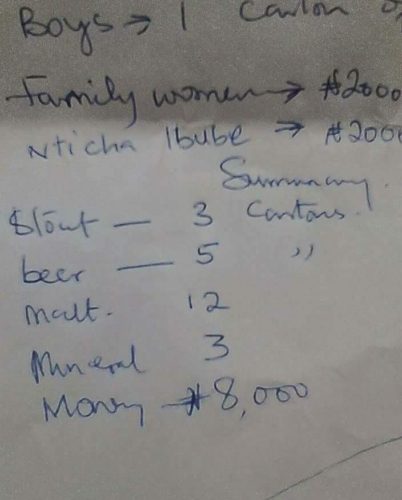 Boys → 1 Carton
Family women → ₦2000
Nticha Ibube → ₦2000
Summary
Stout — 3 Cartons.
beer — 5 ,,
Malt. 12
Mineral 3
Money ₦8,000